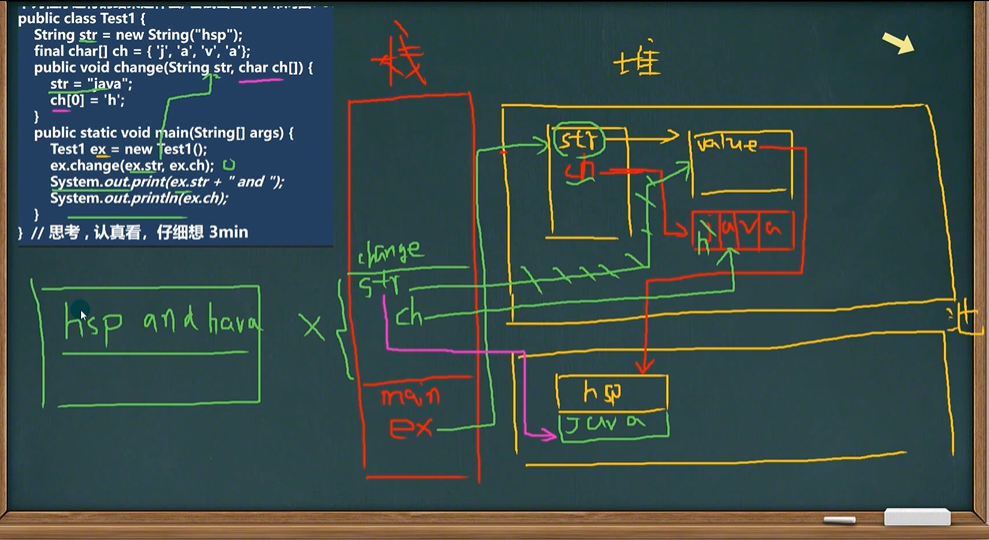 public class Test1 {
String str = new String("hsp");
final char[] ch = { 'j', 'a', 'v', 'a'};
public void change(String str, char ch[]) {
str = "java";
ch[0] = 'h';
}
public static void main(String[] args) {
Test1 ex = new Test1();
ex.change(ex.str, ex.ch);
System.out.print(ex.str + " and ");
System.out.println(ex.ch);
}
} // 思考，认真看，仔细想 3min
栈
堆
str
ch
value
j a v a
h
change
str
ch
main
ex
hsp and hava
hsp
java